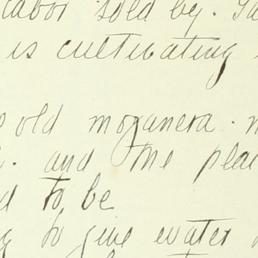 labor sold by.
is cultivating
old mozanera.
and the plea
to be
to give water